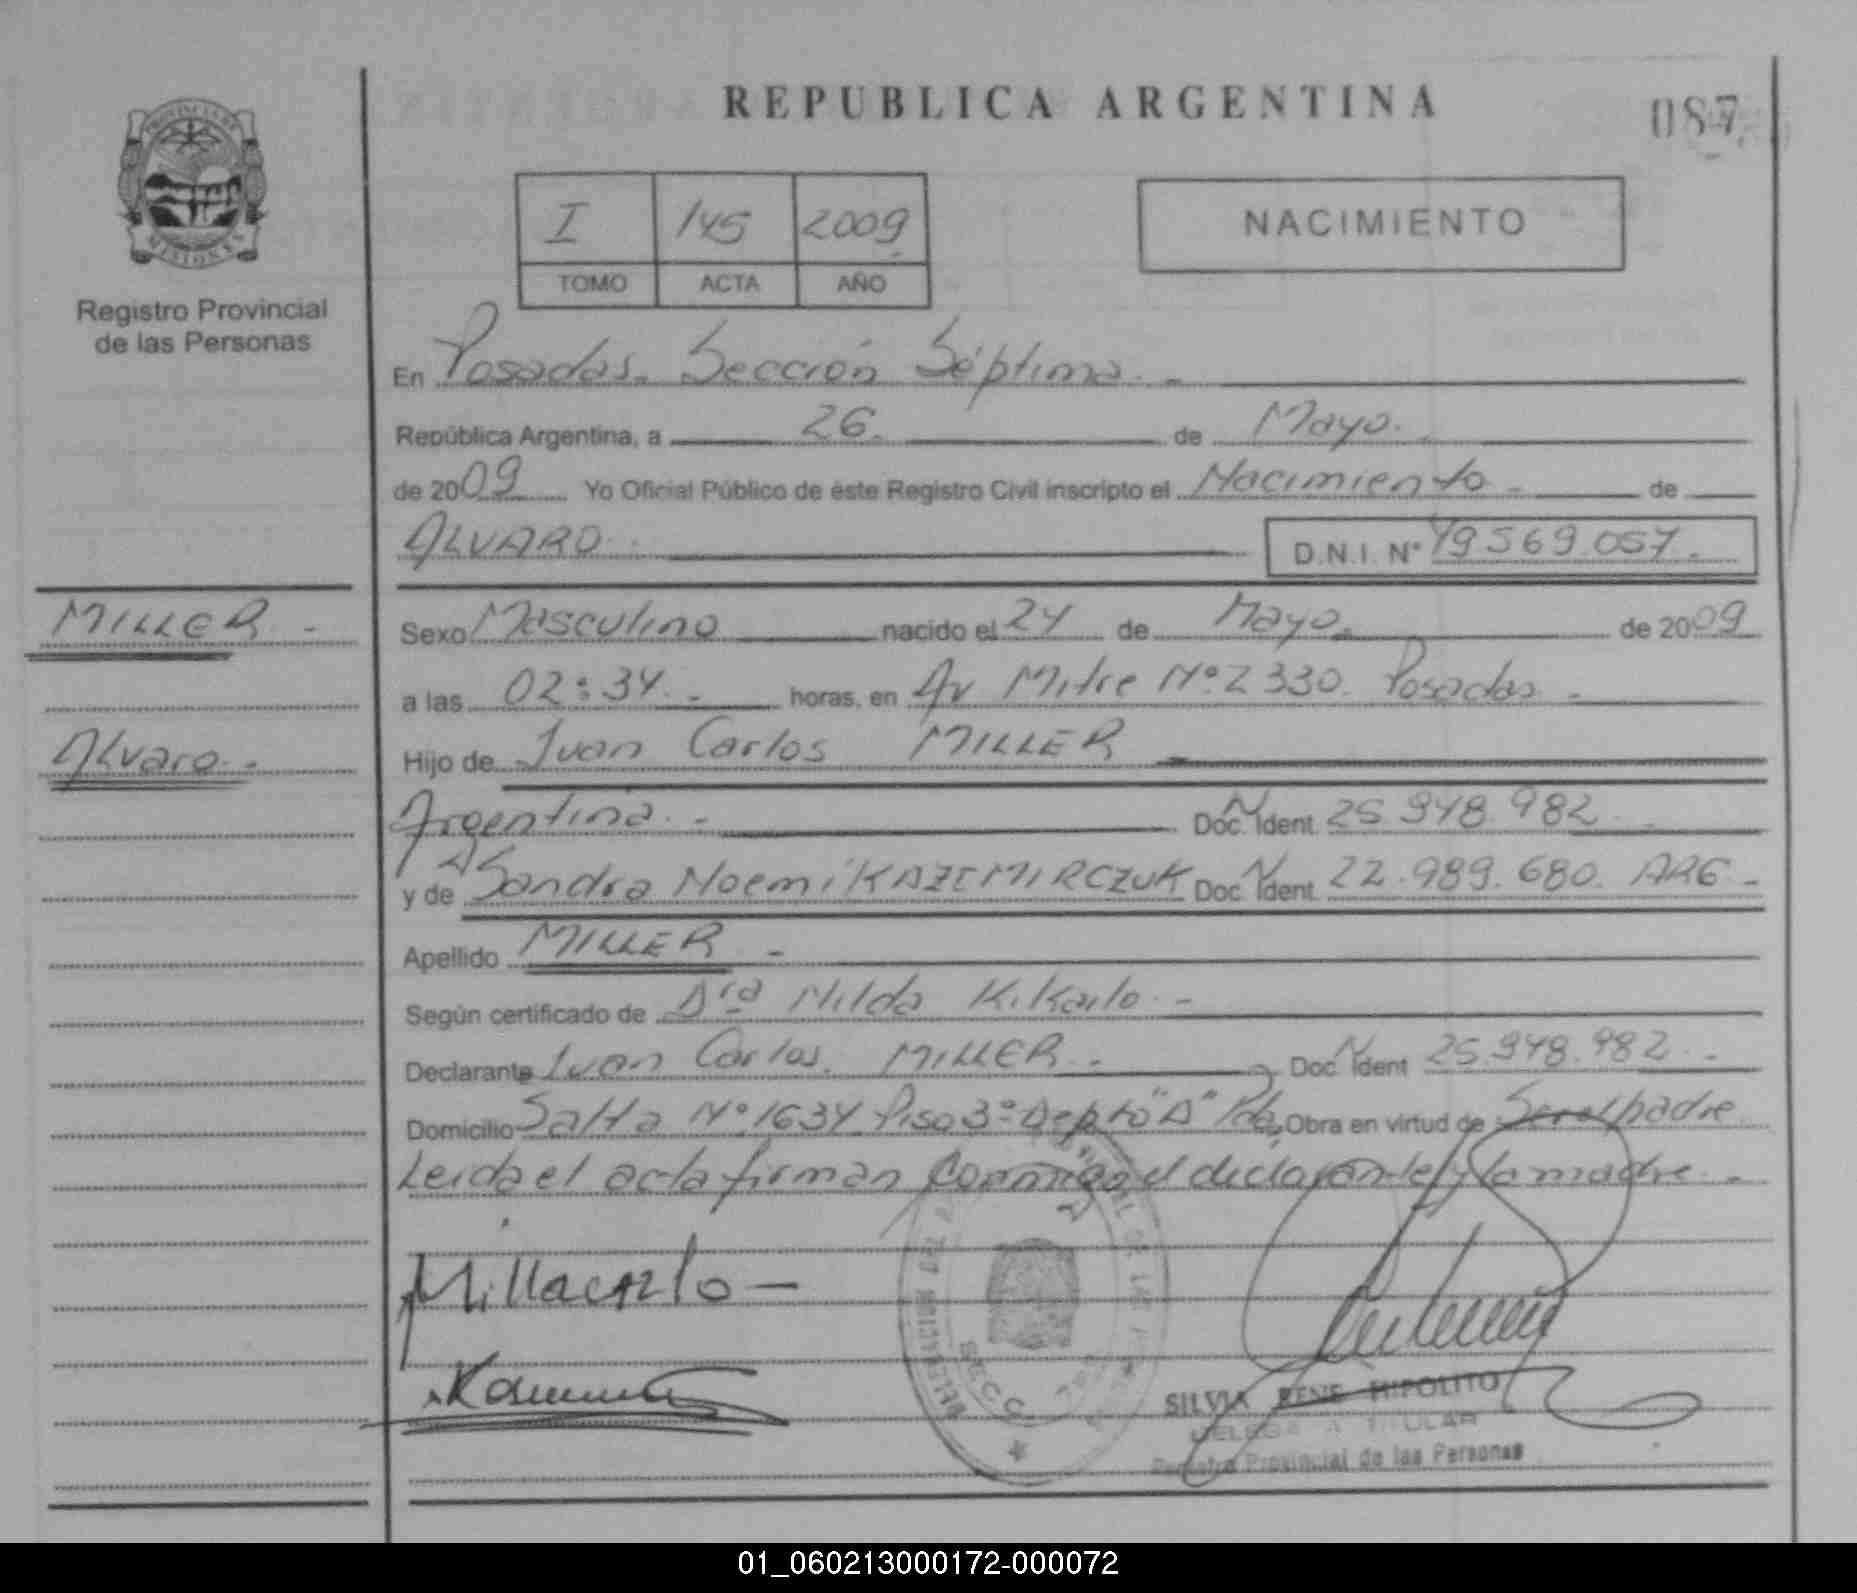 REPUBLICA ARGENTINA
087
PROVINCIA DE
MISIONES
Registro Provincial
de las Personas
I 145 2009
TOMO ACTA AÑO
NACIMIENTO
En Posadas. Sección Séptima. -
República Argentina, a 26. de Mayo.
de 2009 Yo Oficial Público de éste Registro Civil inscripto el Nacimiento - de
ALVARO. D.N.I. Nº 49569.057.
MILLER -
Sexo Masculino nacido el 24 de Mayo. de 2009
a las 02:34. - horas, en Av Mitre Nº 2330. Posadas -
Alvaro. -
Hijo de Juan Carlos MILLER
Argentina. - Doc. N Ident 25.948.982
y de Sandra Noemi KAZEMIRCZUK Doc. N Ident. 22.989.680. ARG -
Apellido MILLER -
Según certificado de Dra Nilda Kikailo. -
Declarante Juan Carlos. MILLER. - Doc. N Ident 25.948.982. -
Domicilio Salta Nº 1634 Piso 3º Depto "A" Pdas Obra en virtud de Ser el padre
Leida el acta firman conmigo el declarante y la madre. -
Millacarlo -
SECC.
SILVIA RENE HIPOLITO
DELEGADA TITULAR
Registro Provincial de las Personas
01_060213000172-000072